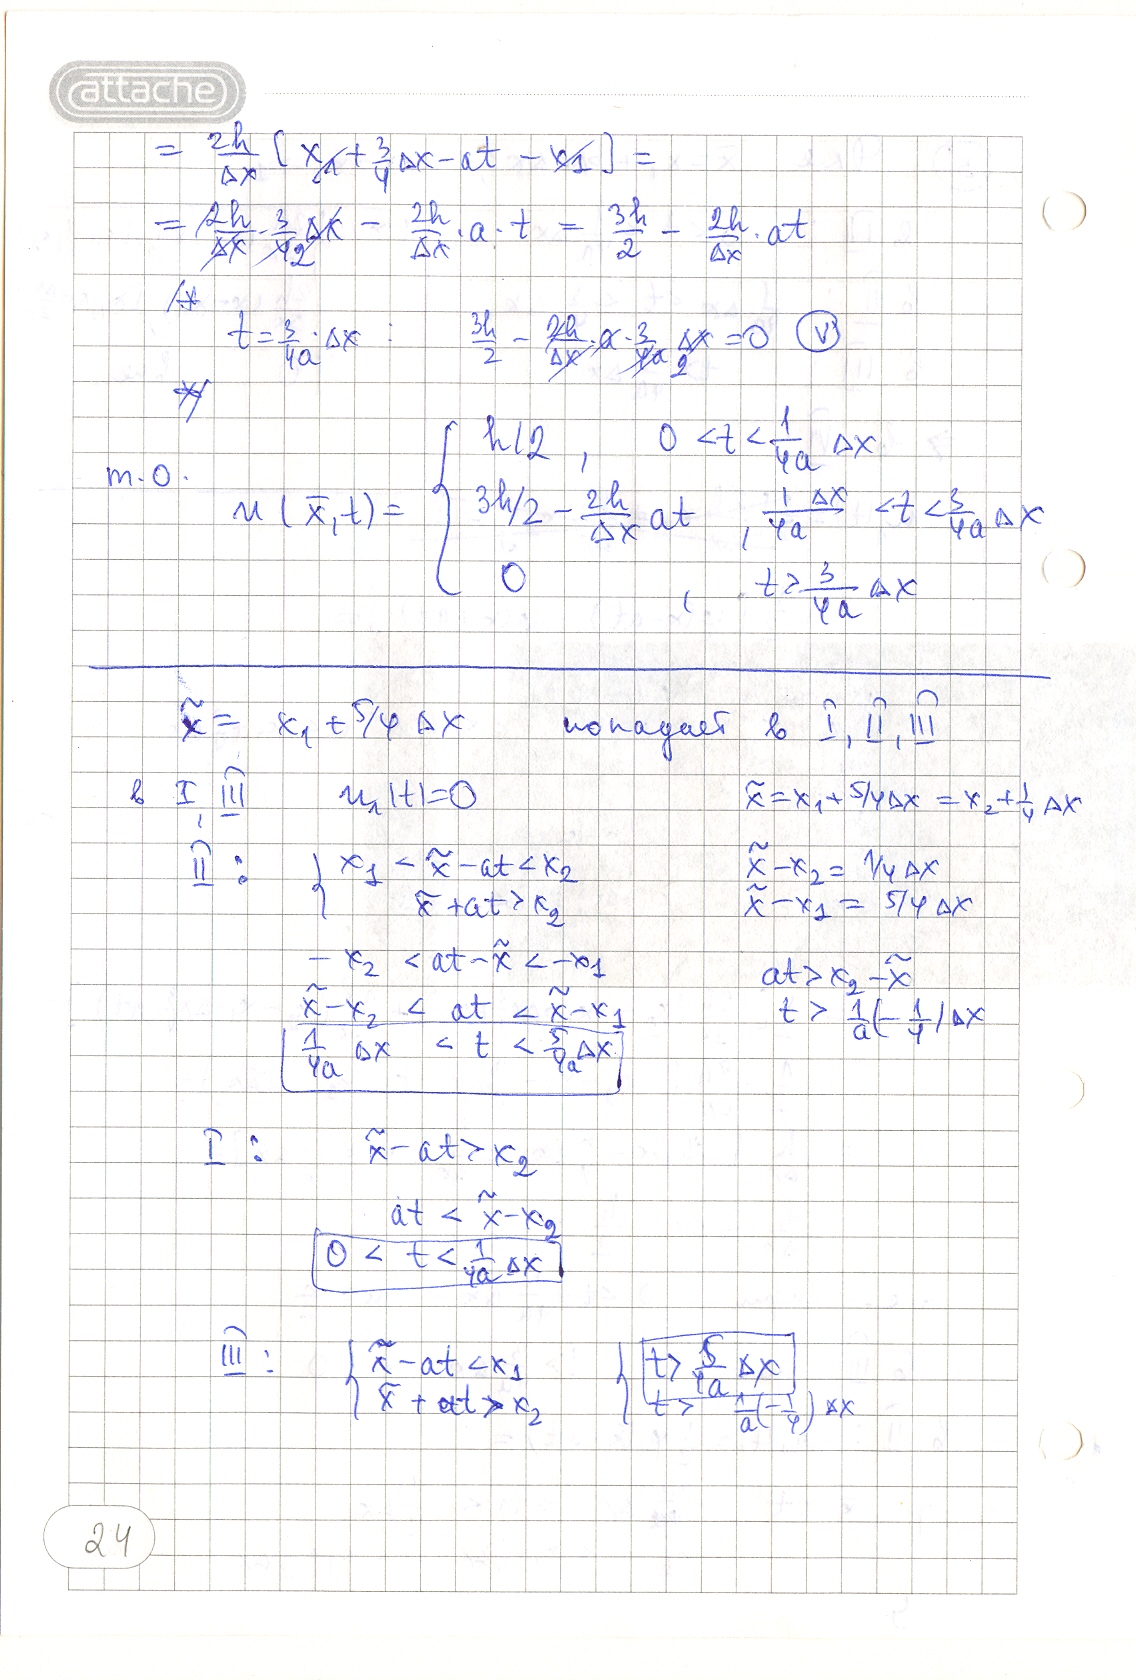 attache
= 2h/Δx [ x₁ + 3/4 Δx - at - x₁ ] =
= 2h/Δx · 3/4 Δx - 2h/Δx · a · t = 3h/2 - 2h/Δx · at
/*
t = 3/4a · Δx : 3h/2 - 2h/Δx · a · 3/4a Δx = 0 (V)
*/
т.о. u(x̄, t) = { h/2, 0 < t < 1/4a Δx
3h/2 - 2h/Δx at, 1/4a Δx < t < 3/4a Δx
0, t > 3/4a Δx
x̃ = x₁ + 5/4 Δx попадает в I, II, III
в I, III u₁(t) = 0 x̃ = x₁ + 5/4 Δx = x₂ + 1/4 Δx
II : { x₁ < x̃ - at < x₂ x̃ - x₂ = 1/4 Δx
x̃ + at > x₂ x̃ - x₁ = 5/4 Δx
- x₂ < at - x̃ < - x₁ at > x₂ - x̃
x̃ - x₂ < at < x̃ - x₁ t > 1/a (- 1/4) Δx
1/4a Δx < t < 5/4a Δx
I : x̃ - at > x₂
at < x̃ - x₂
0 < t < 1/4a Δx
III : { x̃ - at < x₁ { t > 5/4a Δx
x̃ + at > x₂ t > 1/a (- 1/4) Δx
24